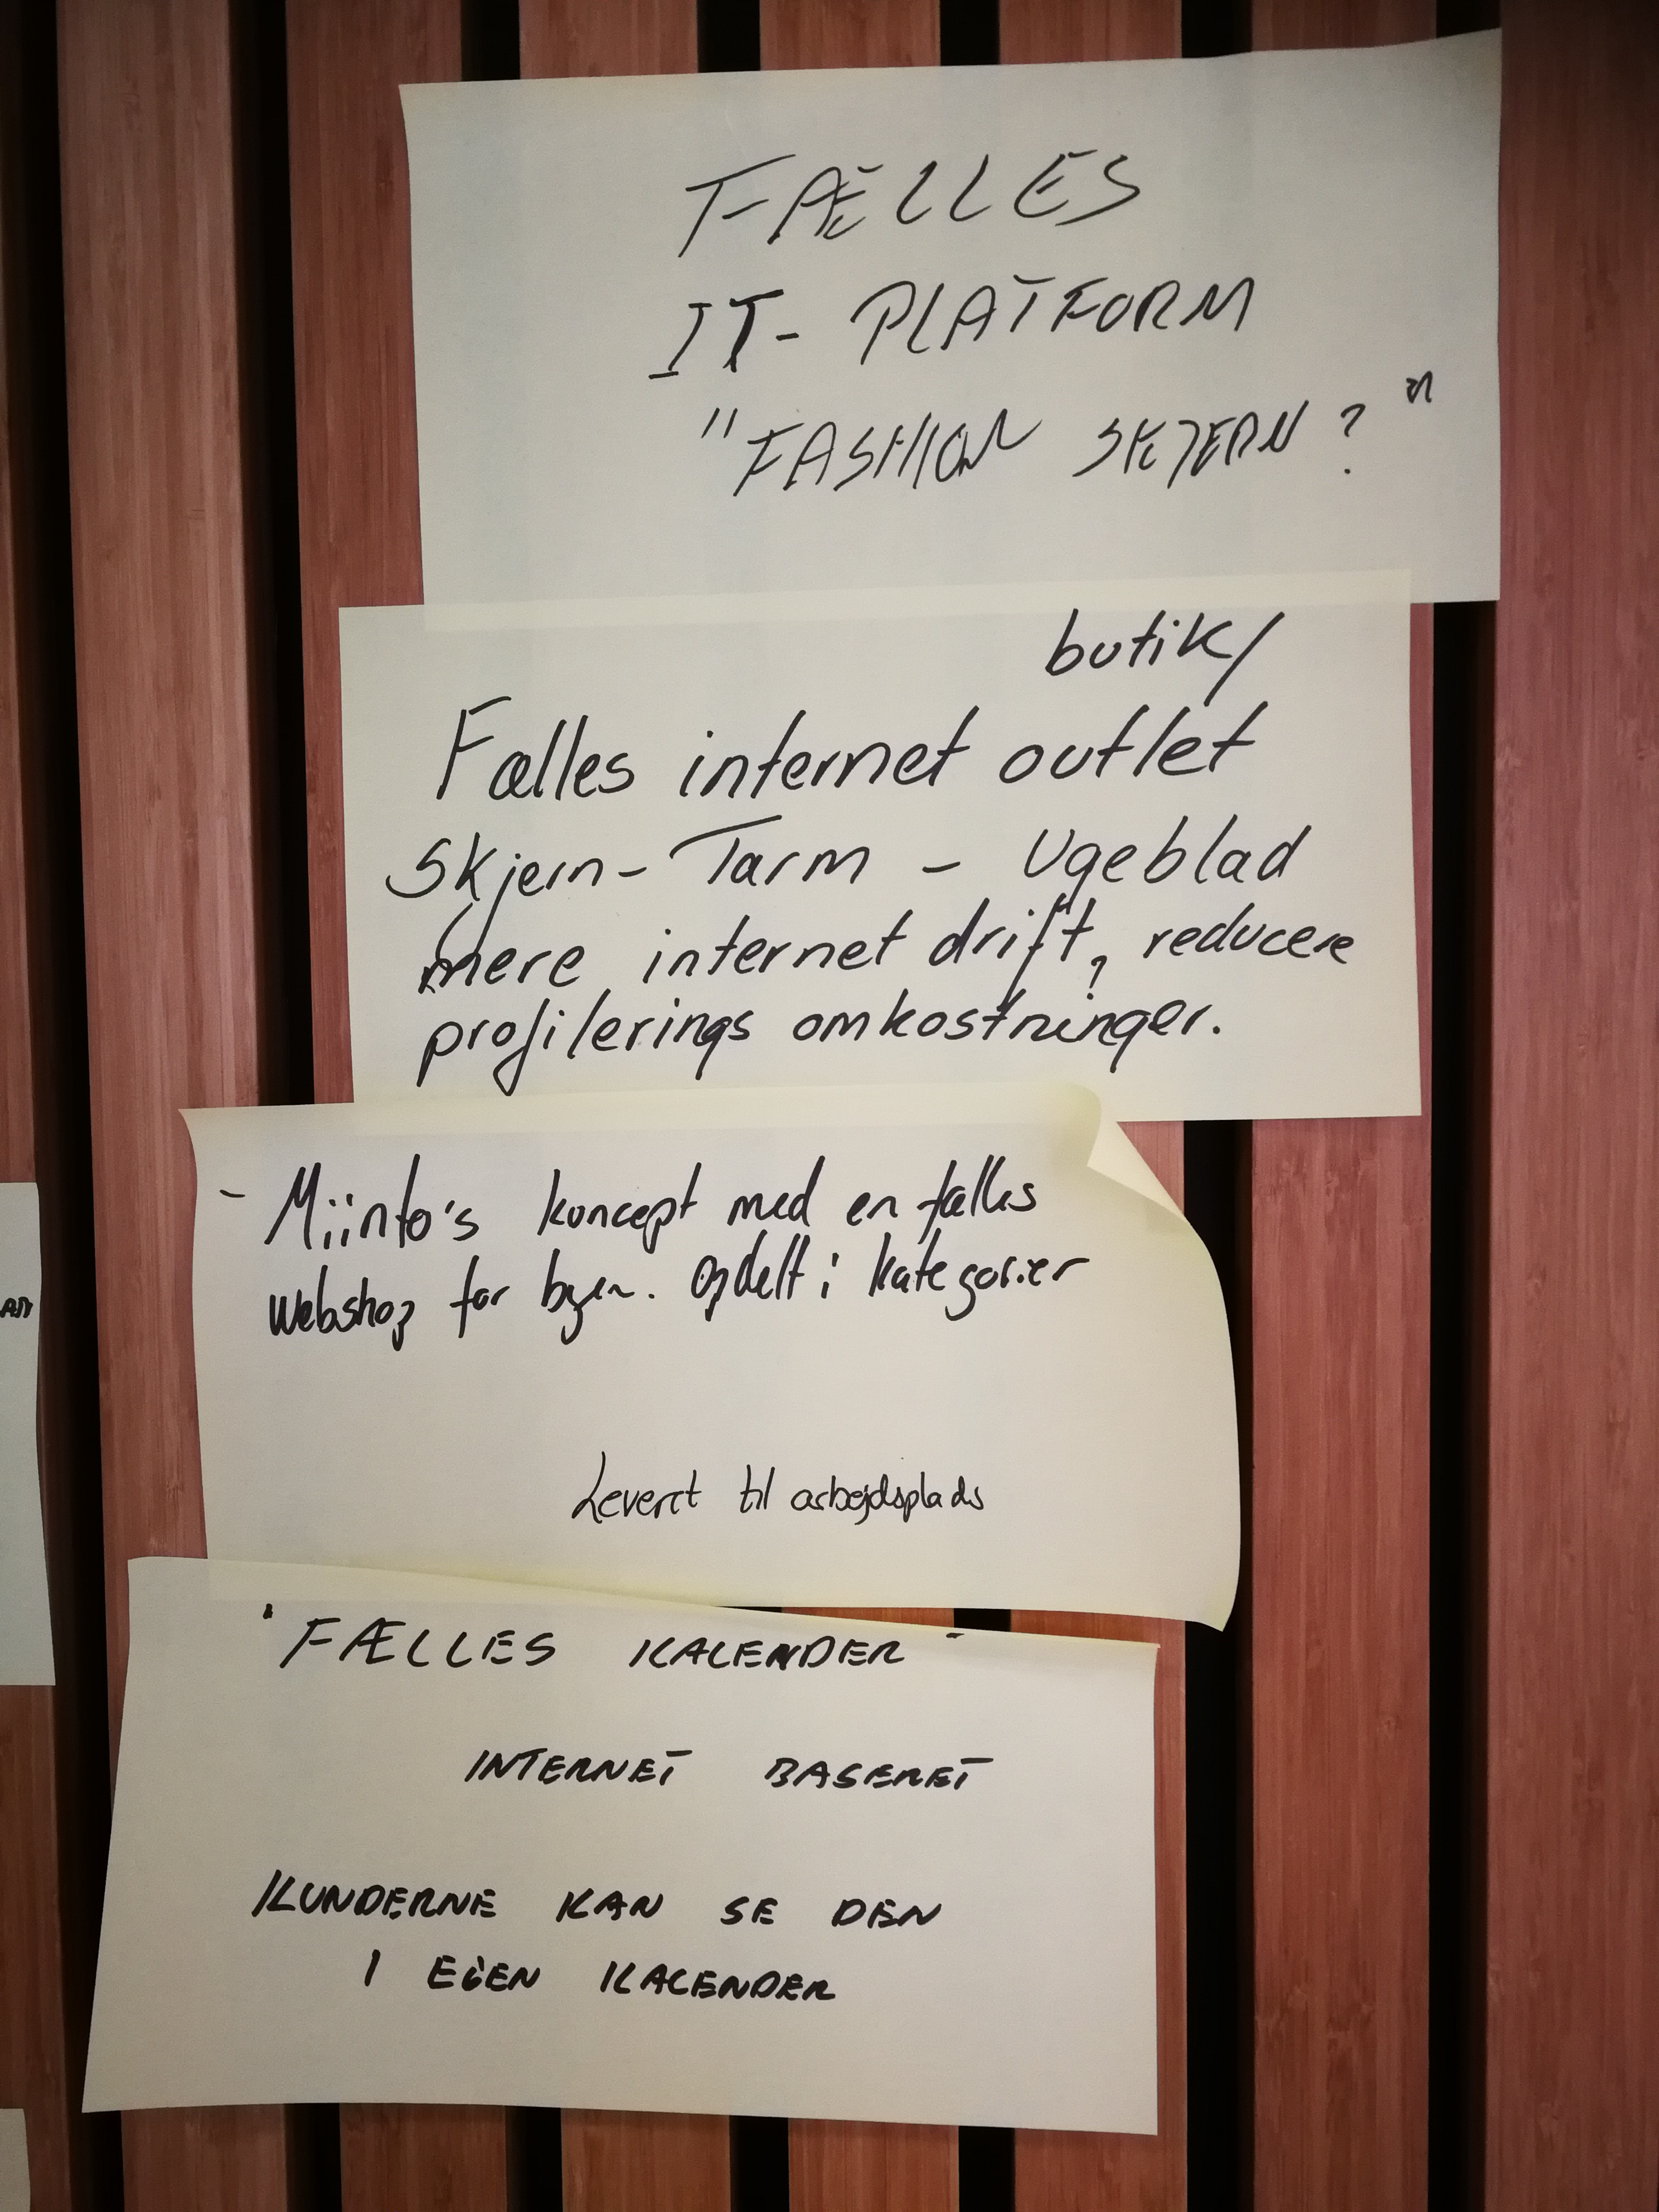 FÆLLES
IT-PLATFORM
"FASHION SKJERN?"
butik/
Fælles internet outlet
Skjern-Tarm - Ugeblad
mere internet drift, reducere
profilerings omkostninger.
- Miinto's koncept med en fælles
webshop for byen. Opdelt i kategorier
Leveret til arbejdsplads
"FÆLLES KALENDER"
INTERNET BASERET
KUNDERNE KAN SE DEN
I EGEN KALENDER